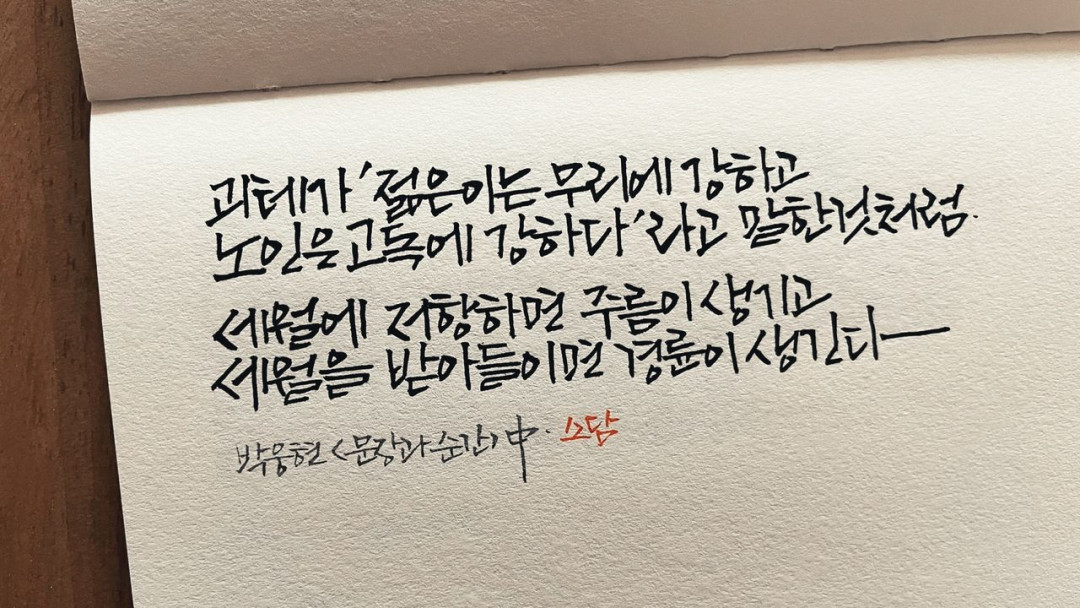 괴테가 '젊은이는 무리에 강하고
노인은 고독에 강하다' 라고 말한것처럼.
세월에 저항하면 주름이 생기고
세월을 받아들이면 경륜이 생긴다—
박웅현 <문장과 순간> 中. 소담